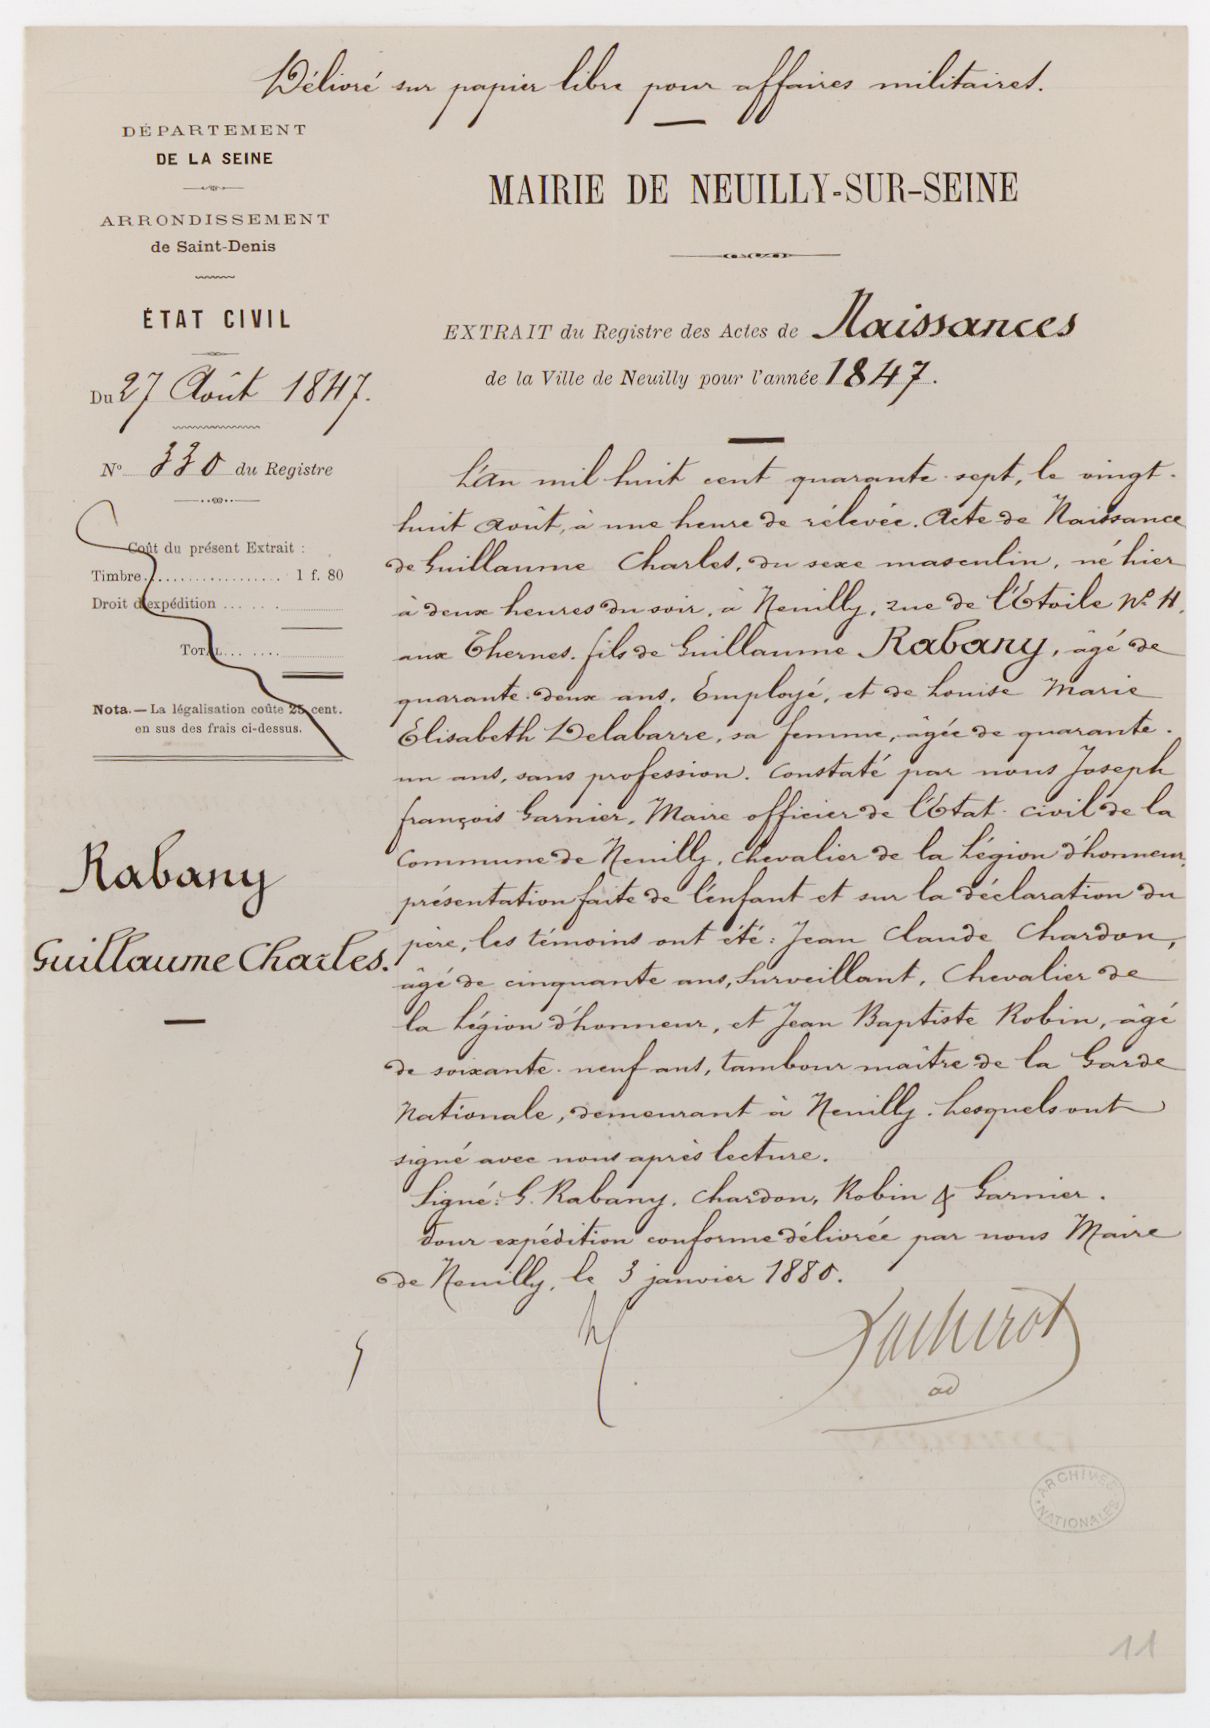 Délivré sur papier libre pour affaires militaires.
DÉPARTEMENT
DE LA SEINE
ARRONDISSEMENT
de Saint-Denis
ÉTAT CIVIL
Du 27 Août 1847.
N° 330 du Registre
Coût du présent Extrait :
Timbre.................. 1 f. 80
Droit d'expédition .......
TOTAL.......
Nota. — La légalisation coûte 25 cent.
en sus des frais ci-dessus.
Rabany
Guillaume Charles.
MAIRIE DE NEUILLY-SUR-SEINE
EXTRAIT du Registre des Actes de Naissances
de la Ville de Neuilly pour l'année 1847.
L'An mil huit cent quarante-sept, le vingt-
huit Août, à une heure de rélevée. Acte de Naissance
de Guillaume Charles, du sexe masculin, né hier
à deux heures du soir, à Neuilly, rue de l'Etoile N° 4,
aux Thernes. fils de Guillaume Rabany, âgé de
quarante-deux ans, Employé, et de Louise Marie
Elisabeth Delabarre, sa femme, âgée de quarante-
un ans, sans profession. Constaté par nous Joseph
françois Garnier, Maire officier de l'Etat-civil de la
Commune de Neuilly, Chevalier de la Légion d'honneur,
présentation faite de l'enfant et sur la déclaration du
père, les témoins ont été : Jean Claude Chardon,
âgé de cinquante ans, Surveillant, Chevalier de
la Légion d'honneur, et Jean Baptiste Robin, âgé
de soixante-neuf ans, tambour maître de la Garde
Nationale, demeurant à Neuilly. Lesquels ont
signé avec nous après lecture.
Signé : G. Rabany, Chardon, Robin & Garnier.
Pour expédition conforme délivrée par nous Maire
de Neuilly, le 3 janvier 1880.
ad
ARCHIVES
NATIONALES
11